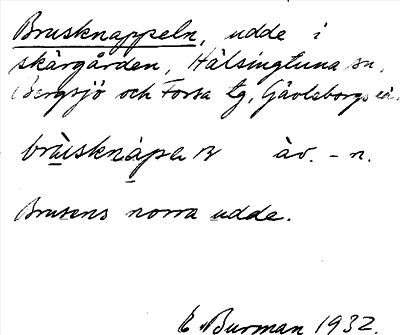 Brusknappeln, udde i
skärgården, Hälsingtuna sn,
Bergsjö och Forsa tg, Gävleborgs
brùsknàpeln àv. - n.
Brusens norra udde.
E. Burman 1932.